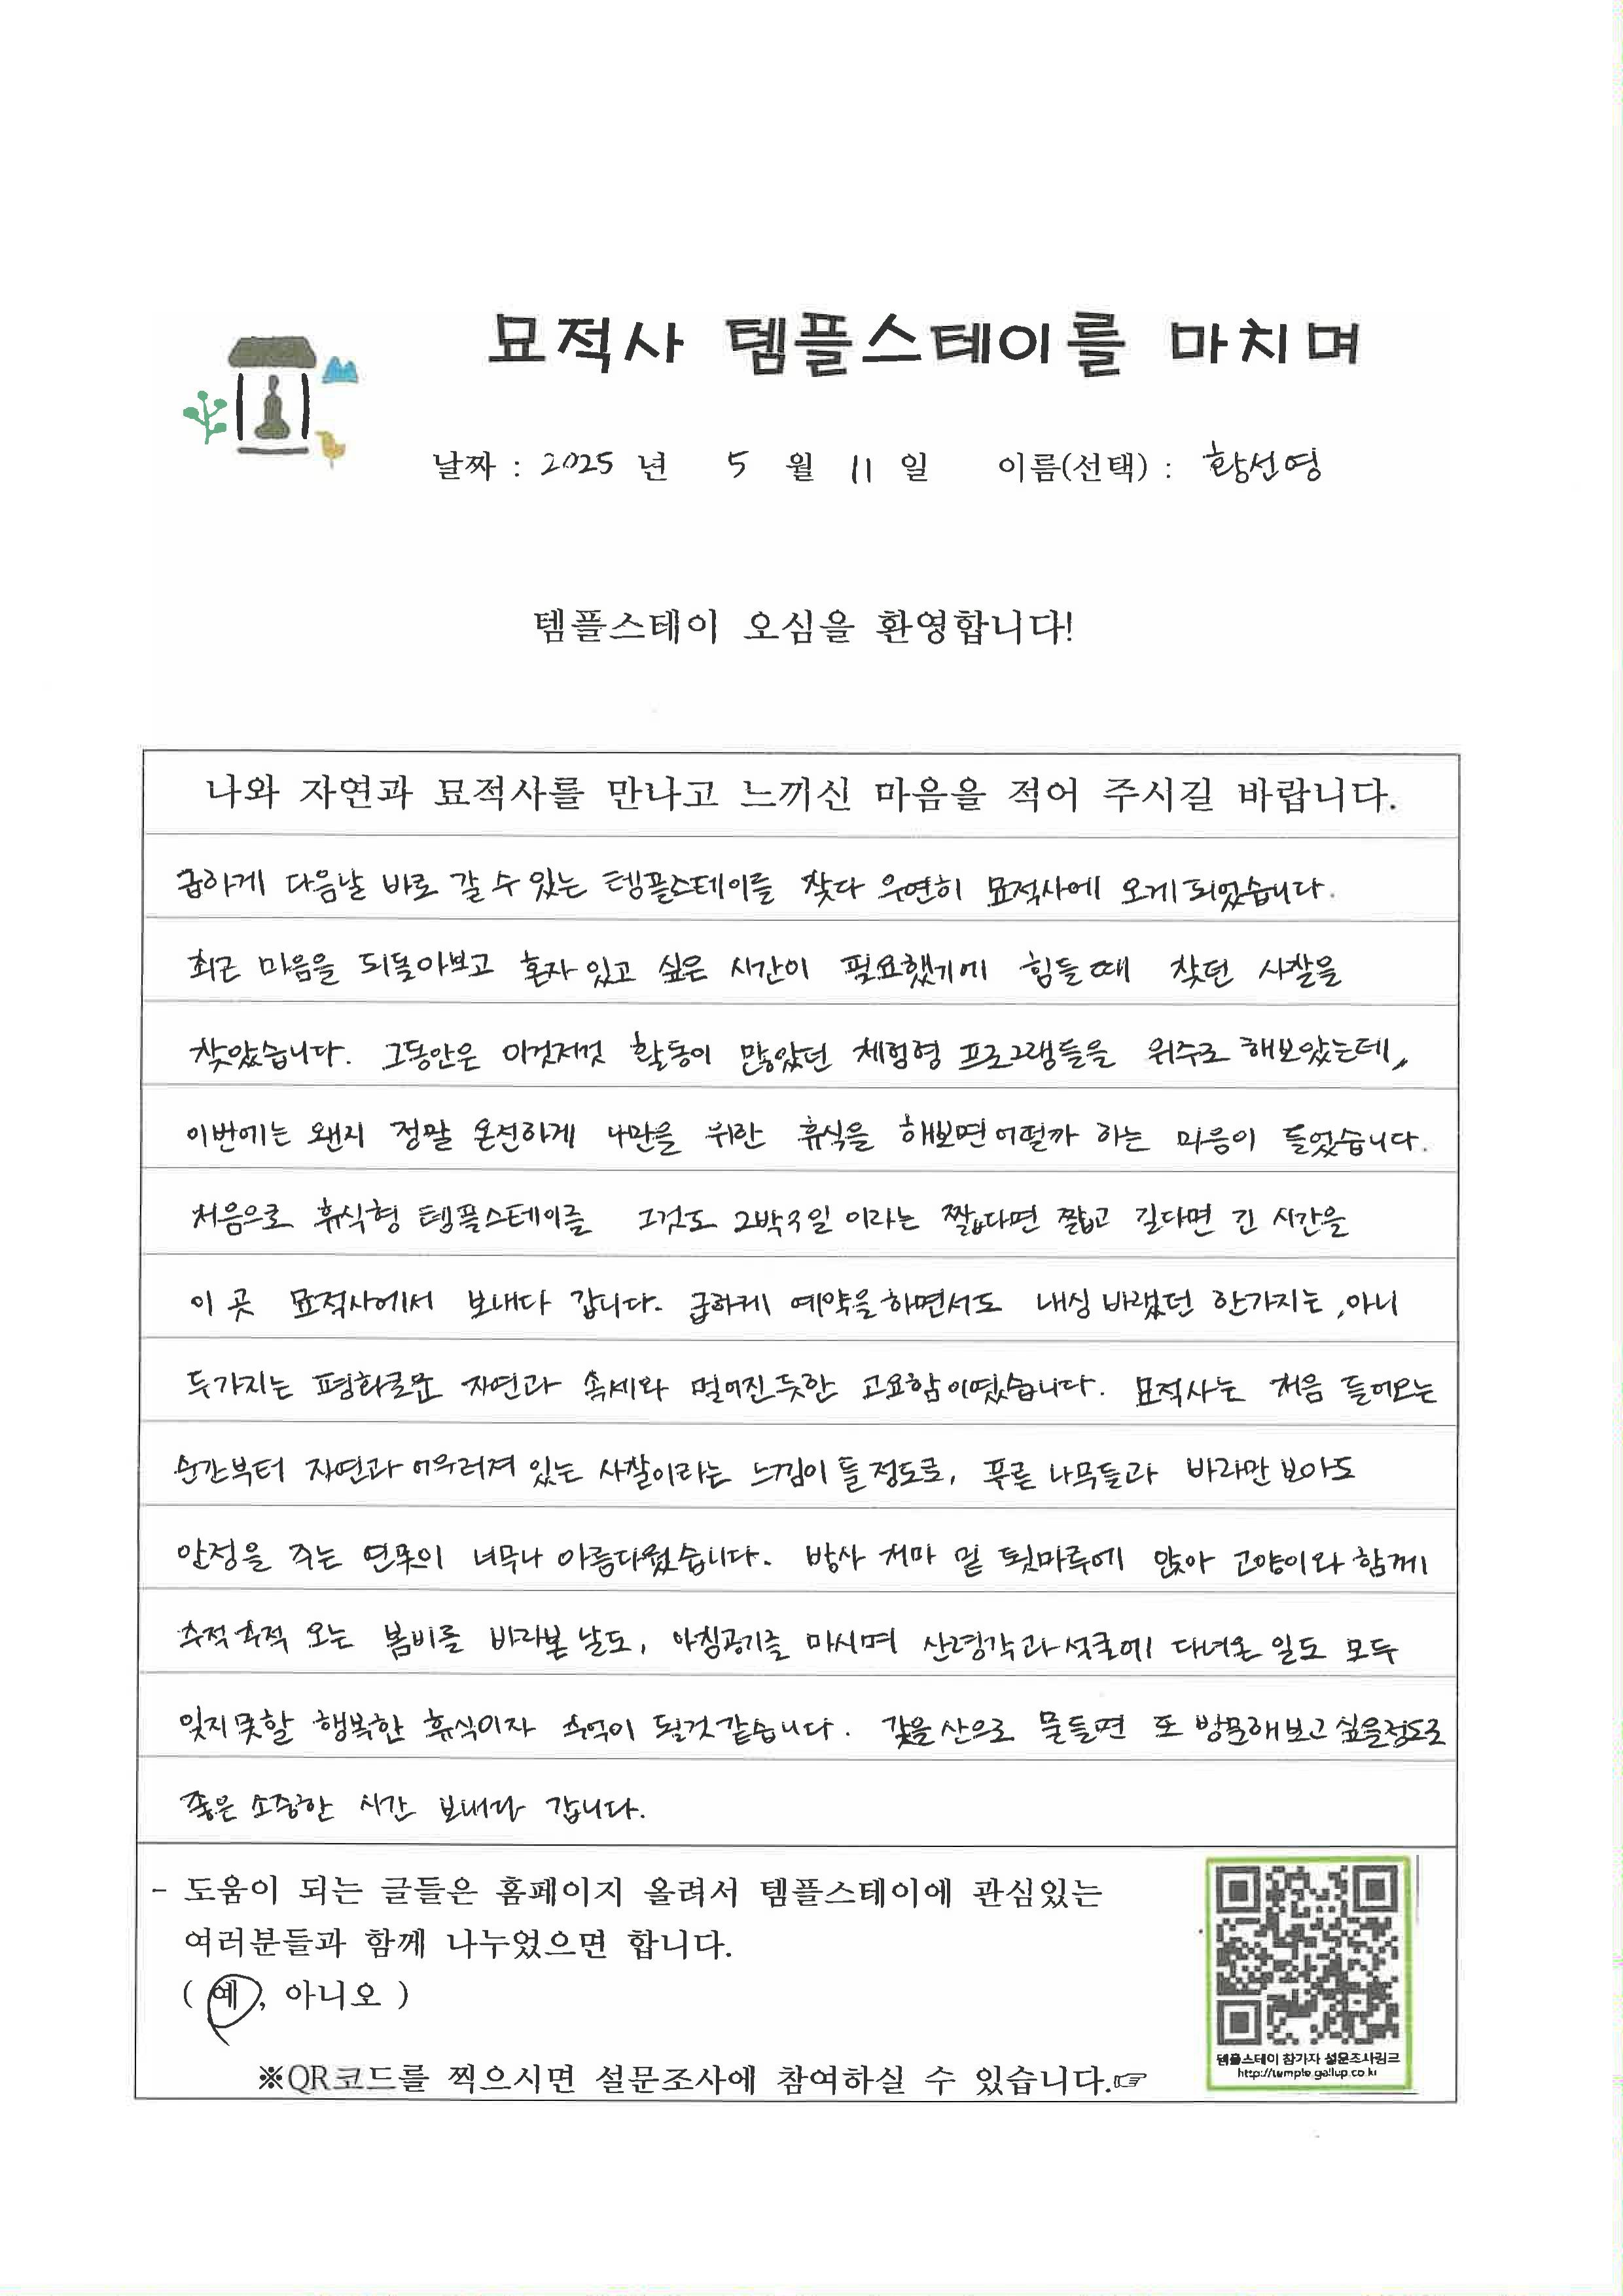 묘적사 템플스테이를 마치며
날짜 : 2025 년 5 월 11 일 이름(선택) : 황선영
템플스테이 오심을 환영합니다!
나와 자연과 묘적사를 만나고 느끼신 마음을 적어 주시길 바랍니다.
급하게 다음날 바로 갈 수 있는 템플스테이를 찾다 우연히 묘적사에 오게 되었습니다.
최근 마음을 되돌아보고 혼자 있고 싶은 시간이 필요했기에 힘들 때 찾던 사찰을
찾았습니다. 그동안은 이것저것 활동이 많았던 체험형 프로그램들을 위주로 해보았는데,
이번에는 왠지 정말 온전하게 나만을 위한 휴식을 해보면 어떨까 하는 마음이 들었습니다.
처음으로 휴식형 템플스테이를 그것도 2박3일 이라는 짧다면 짧고 길다면 긴 시간을
이 곳 묘적사에서 보내다 갑니다. 급하게 예약을 하면서도 내심 바랬던 한가지는 ,아니
두가지는 평화로운 자연과 속세와 멀어진듯한 고요함이였습니다. 묘적사는 처음 들어오는
순간부터 자연과 어우러져 있는 사찰이라는 느낌이 들 정도로, 푸른 나무들과 바라만 보아도
안정을 주는 연못이 너무나 아름다웠습니다. 방사 처마 밑 툇마루에 앉아 고양이와 함께
추적추적 오는 봄비를 바라본 날도, 아침공기를 마시며 산령각과 석굴에 다녀온 일도 모두
잊지못할 행복한 휴식이자 추억이 될것 같습니다. 갗을 산으로 물들면 또 방문해보고 싶을정도로
좋은 소중한 시간 보내다 갑니다.
- 도움이 되는 글들은 홈페이지 올려서 템플스테이에 관심있는
여러분들과 함께 나누었으면 합니다.
( 예, 아니오 )
※QR코드를 찍으시면 설문조사에 참여하실 수 있습니다.☞
템플스테이 참가자 설문조사링크
http://temple.gallup.co.kr